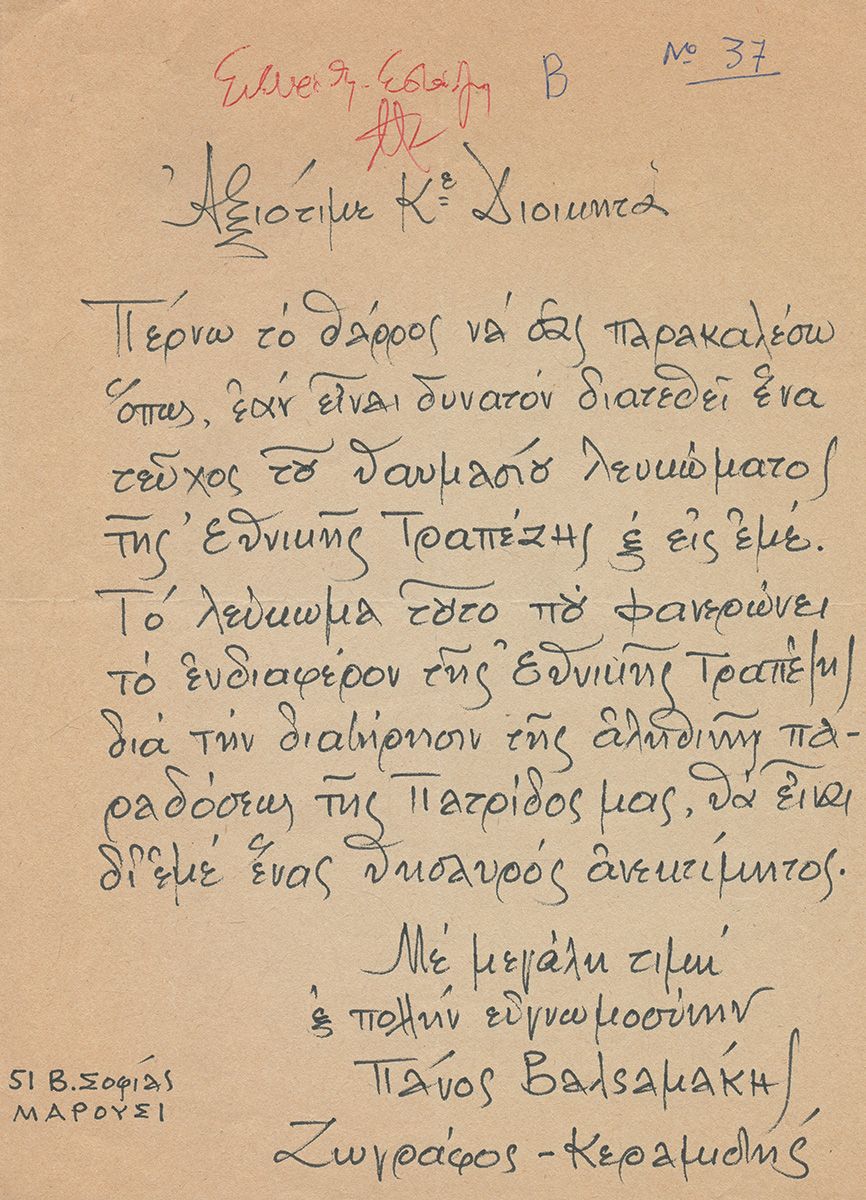 Β
Νο 37
Ἀξιότιμε Κε Διοικητά
Πέρνω τό θάρρος νά σᾶς παρακαλέσω
ὅπως, ἐάν εἶναι δυνατόν διατεθεῖ ἕνα
τεῦχος τοῦ θαυμασίου λευκώματος
τῆς Ἐθνικῆς Τραπέζης ϗ εἰς ἐμέ.
Τό λεύκωμα τοῦτο πού φανερώνει
τό ἐνδιαφέρον τῆς Ἐθνικῆς Τραπέζης
διά τήν διατήρησιν τῆς ἀληθινῆς πα-
ραδόσεως τῆς Πατρίδος μας, θά εἶναι
δι' ἐμέ ἕνας θησαυρός ἀνεκτίμητος.
Μέ μεγάλη τιμή
ϗ πολλήν εὐγνωμοσύνην
Πάνος Βαλσαμάκης
Ζωγράφος - Κεραμιστής
51 Β. Σοφίας
ΜΑΡΟΥΣΙ